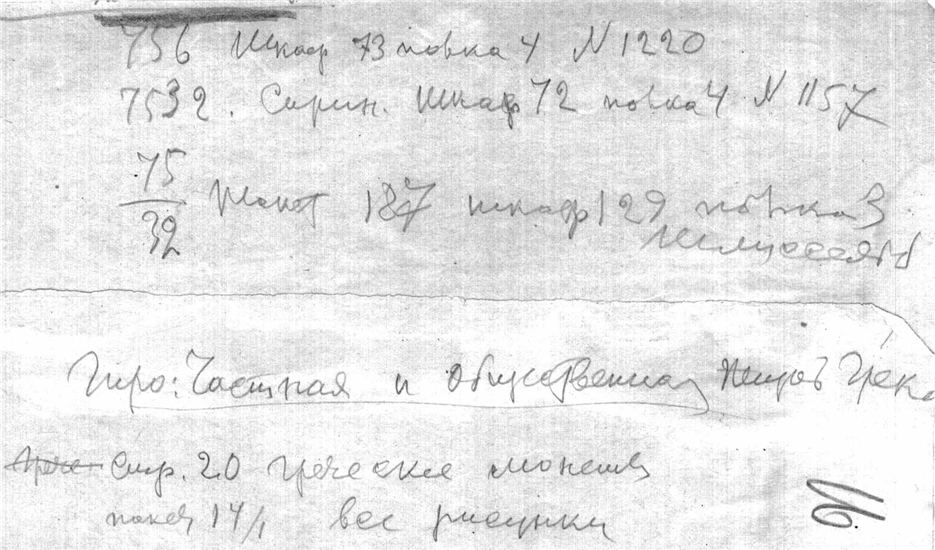 756 Шкаф 73 полка 4 N 1220
7532. Скрин. Шкаф 72 полка 4 N 1157
75
32
187 шкаф 129 полка 3
Гиро: Частная и общественная жизнь Грек
Стр. 20 греческие монеты
14/1 все рисунки